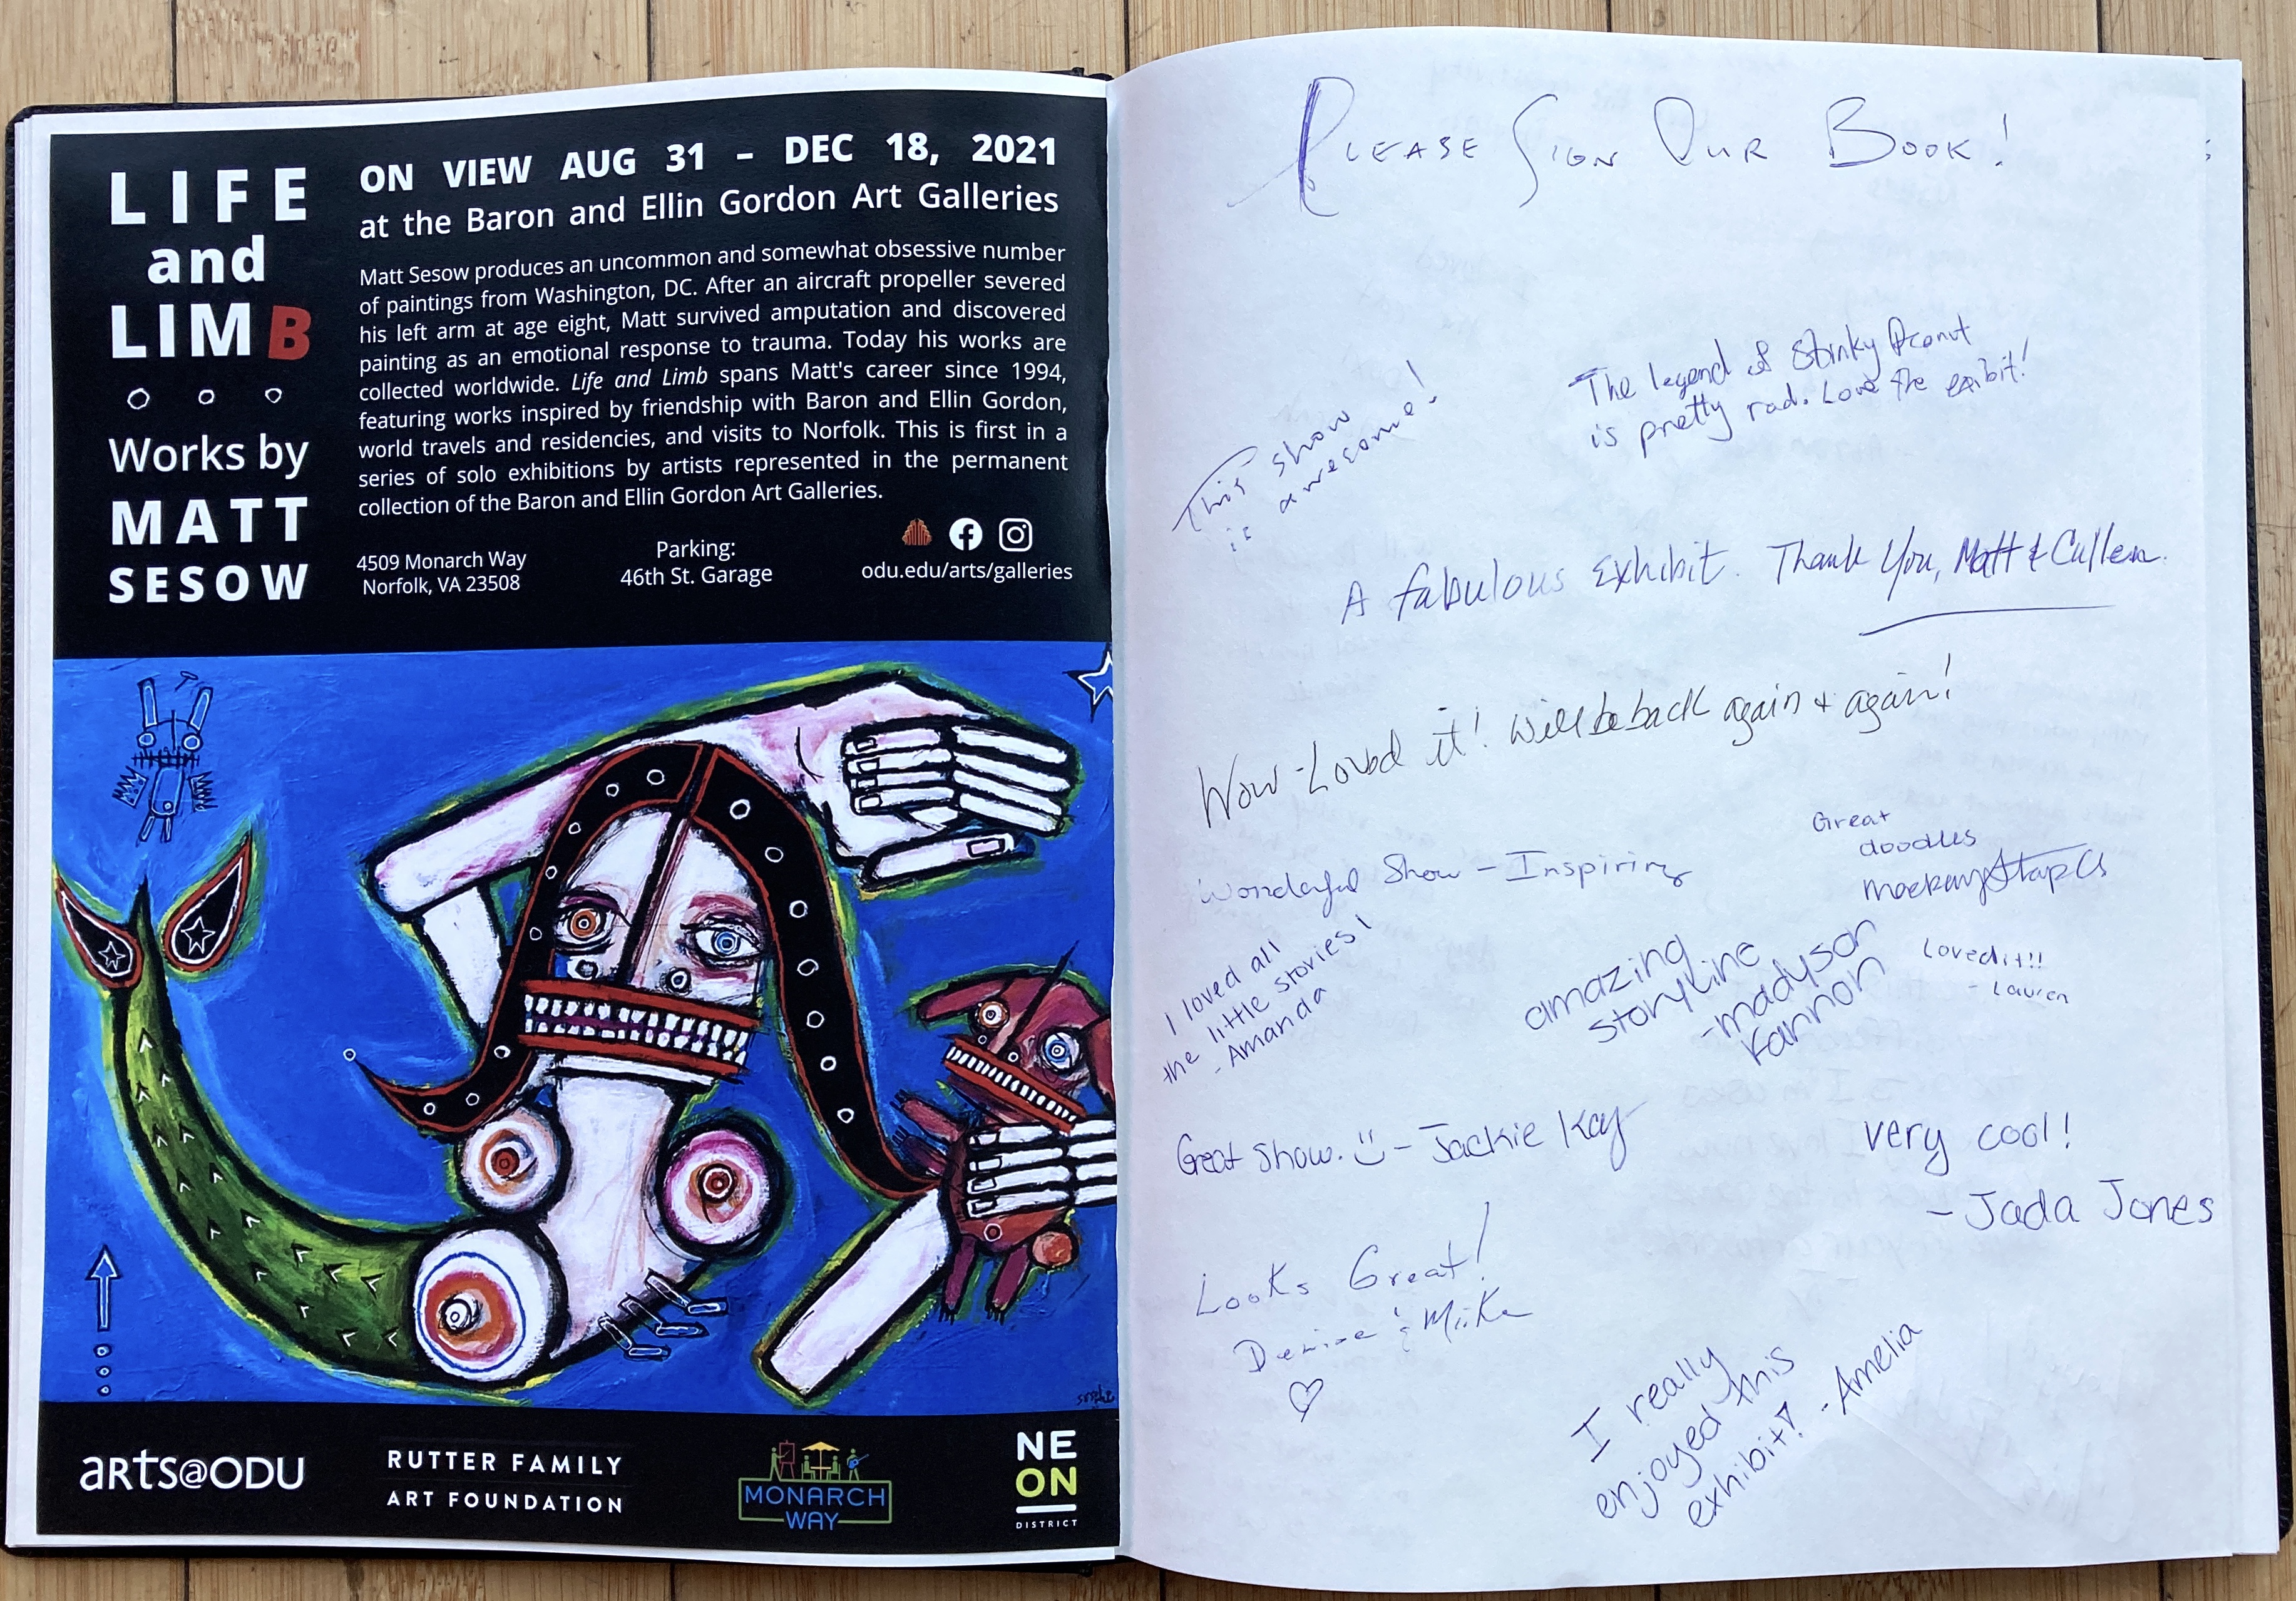 LIFE
and
LIMB
Works by
MATT
SESOW
ON VIEW AUG 31 – DEC 18, 2021
at the Baron and Ellin Gordon Art Galleries
Matt Sesow produces an uncommon and somewhat obsessive number
of paintings from Washington, DC. After an aircraft propeller severed
his left arm at age eight, Matt survived amputation and discovered
painting as an emotional response to trauma. Today his works are
collected worldwide. Life and Limb spans Matt's career since 1994,
featuring works inspired by friendship with Baron and Ellin Gordon,
world travels and residencies, and visits to Norfolk. This is first in a
series of solo exhibitions by artists represented in the permanent
collection of the Baron and Ellin Gordon Art Galleries.
4509 Monarch Way
Norfolk, VA 23508
Parking:
46th St. Garage
odu.edu/arts/galleries
arts@ODU
RUTTER FAMILY
ART FOUNDATION
MONARCH
WAY
NE
ON
DISTRICT
PLEASE SIGN OUR BOOK!
The legend of Stinky
is pretty rad. Love the exibit!
This show
is awesome!
A fabulous exhibit. Thank You, Matt & Cullen.
Wow - Loved it! Will be back again + again!
Great
doodles
Wonderful Show - Inspiring
I loved all
the little stories!
- Amanda
amazing
storyline
- madyson
Kannon
Loved it!!
- Lauren
Great Show. - Jackie Kay
very cool!
- Jada Jones
Looks Great!
Denise & Mike
I really
enjoyed this
exhibit! - Amelia